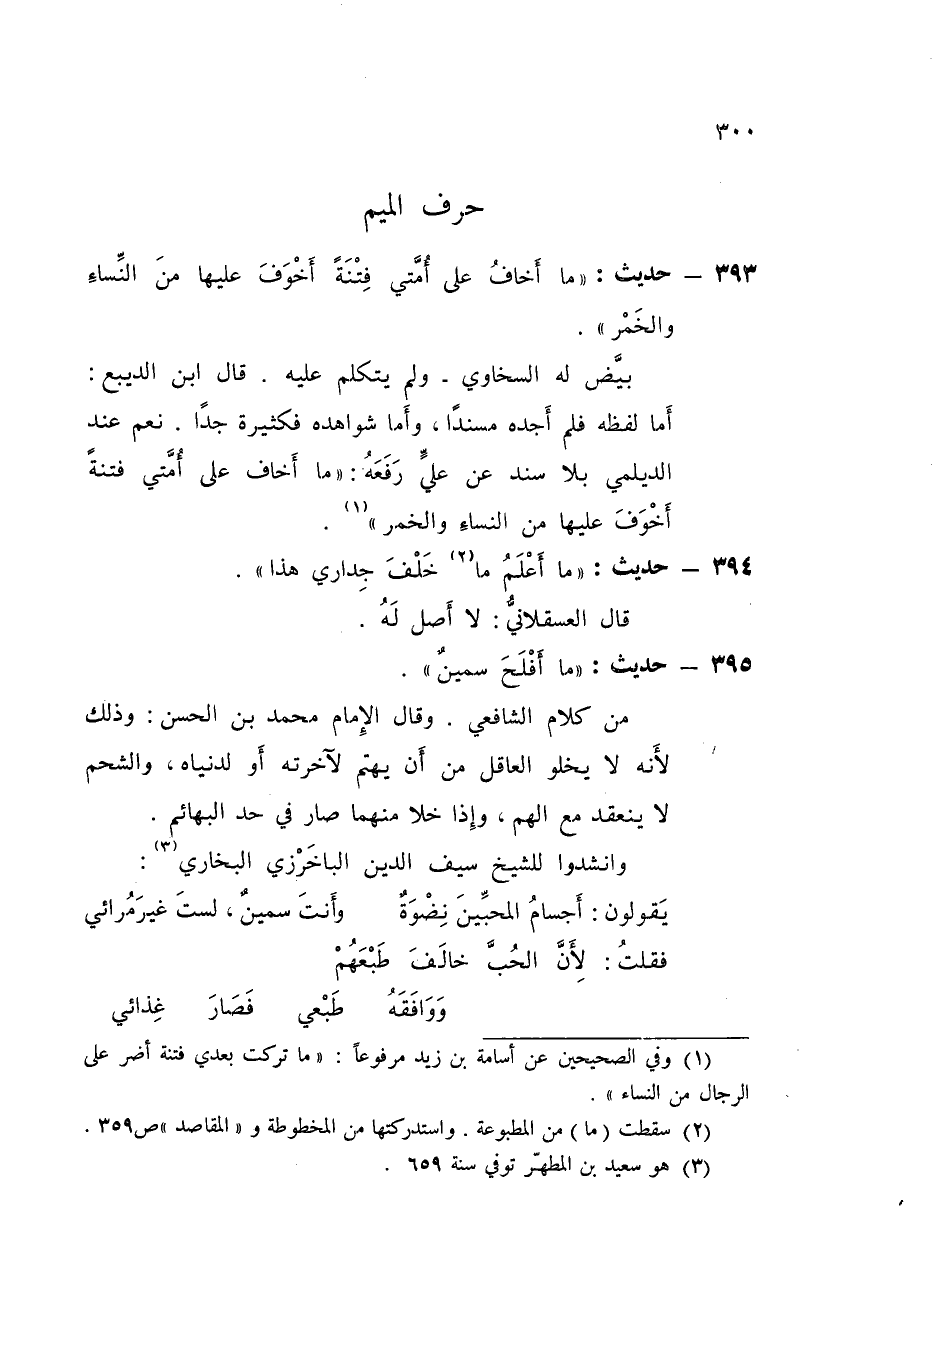 ٣٠٠
حرف الميم
٣٩٣ – حديث : «ما أَخافُ على أُمَّتي فِتْنَةً أَخْوَفَ عليها منَ النِّساءِ
والخَمْرِ» .
بيَّض له السخاوي - ولم يتكلم عليه . قال ابن الديبع :
أَما لفظه فلم أَجده مسندًا ، وأَما شواهده فكثيرة جدًا . نعم عند
الديلمي بلا سند عن عليٍّ رَفَعَهُ : «ما أَخاف على أُمَّتي فتنةً
أَخْوَفَ عليها من النساءِ والخمر »(١) .
٣٩٤ – حديث : «ما أَعْلَمُ ما(٢) خَلْفَ جِداري هذا» .
قال العسقلانيُّ : لا أَصل لَهُ .
٣٩٥ – حديث : «ما أَفْلَحَ سمينٌ» .
من كلام الشافعي . وقال الإِمام محمد بن الحسن : وذلك
لأَنه لا يخلو العاقل من أَن يهتم لآخرته أَو لدنياه ، والشحم
لا ينعقد مع الهم ، وإِذا خلا منهما صار في حد البهائم .
وانشدوا للشيخ سيف الدين الباخَرْزي البخاري(٣) :
يَقولون : أَجسامُ المحبِّينَ نِضْوَةٌ وأَنتَ سمينٌ ، لستَ غيرَ مُرائي
فقلتُ : لِأَنَّ الحُبَّ خالَفَ طَبْعَهُمْ
وَوَافَقَهُ طَبْعي فَصَارَ غِذائي
(١) وفي الصحيحين عن أسامة بن زيد مرفوعاً : « ما تركت بعدي فتنة أضر على
الرجال من النساء » .
(٢) سقطت ( ما ) من المطبوعة . واستدركتها من المخطوطة و « المقاصد » ص٣٥٩ .
(٣) هو سعيد بن المطهّر توفي سنة ٦٥٩ .